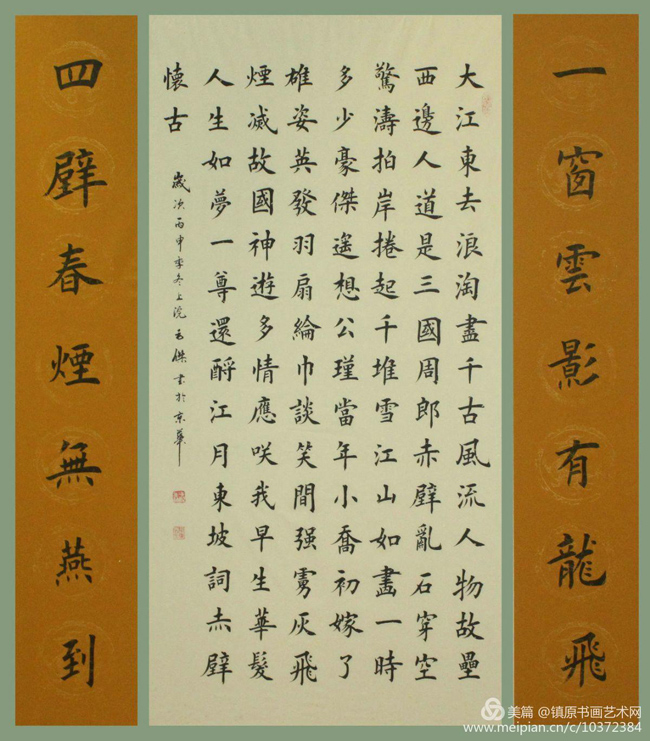 一窗雲影有龍飛
大江東去浪淘盡千古風流人物故壘
西邊人道是三國周郎赤壁亂石穿空
驚濤拍岸捲起千堆雪江山如畫一時
多少豪傑遙想公瑾當年小喬初嫁了
雄姿英發羽扇綸巾談笑間强虜灰飛
煙滅故國神遊多情應咲我早生華髮
人生如夢一尊還酹江月東坡詞赤壁
懷古
歲次丙申季冬上浣玉傑書於京華
四壁春煙無燕到
美篇 @镇原书画艺术网
www.meipian.cn/c/10372384